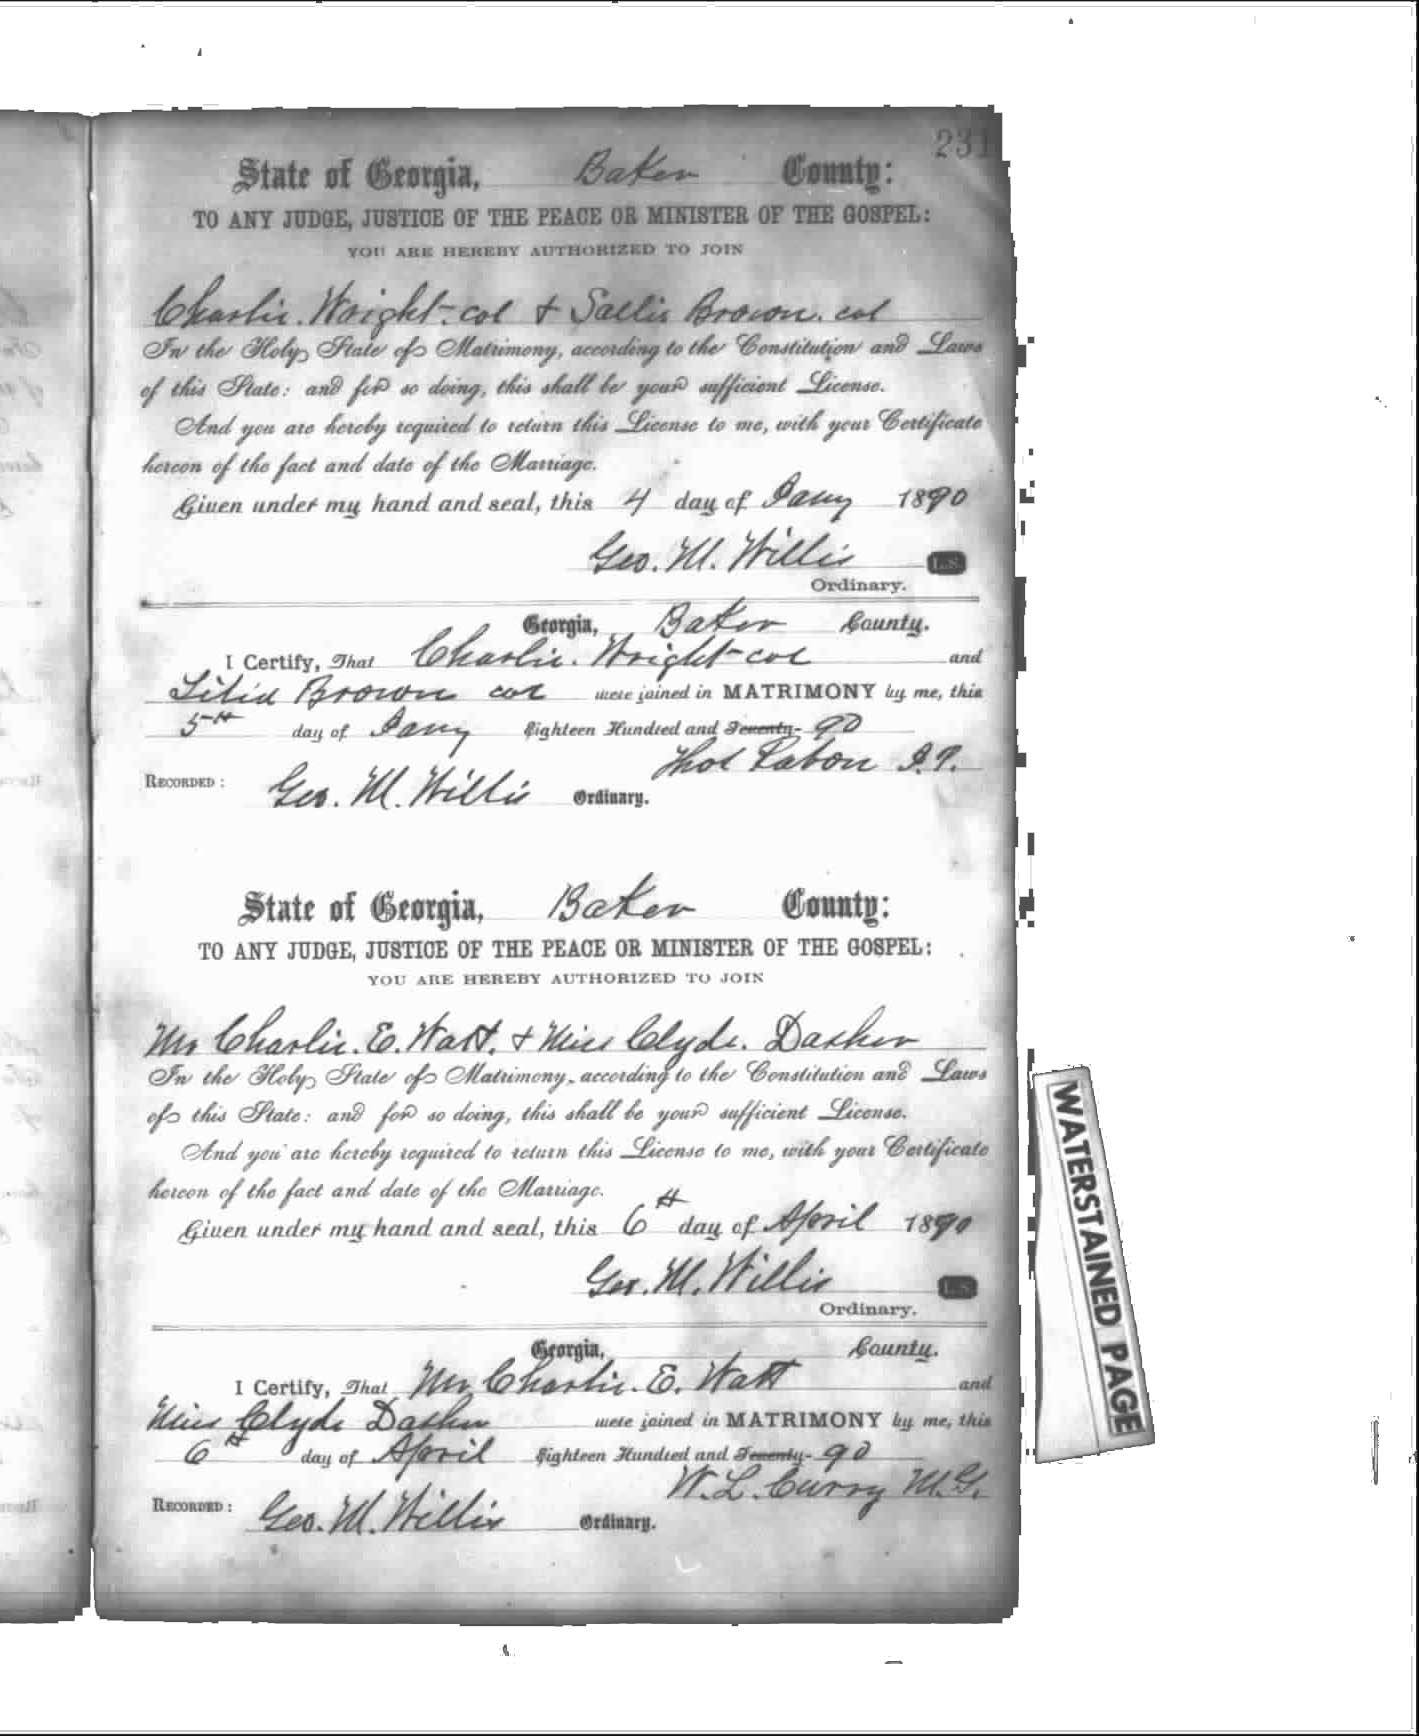 231
State of Georgia, Baker County:
TO ANY JUDGE, JUSTICE OF THE PEACE OR MINISTER OF THE GOSPEL:
YOU ARE HEREBY AUTHORIZED TO JOIN
Charlie. Wright-col & Sallie Brown. col
In the Holy State of Matrimony, according to the Constitution and Laws
of this State: and for so doing, this shall be your sufficient License.
And you are hereby required to return this License to me, with your Certificate
hereon of the fact and date of the Marriage.
Given under my hand and seal, this 4 day of Jany 1890
Geo. M. Willis L.S.
Ordinary.
Georgia, Baker County.
I Certify, That Charlie. Wright-col and
Brown col were joined in MATRIMONY by me, this
5th day of Jany Eighteen Hundred and Seventy- 90
Thos Rabon J.P.
RECORDED: Geo. M. Willis Ordinary.
State of Georgia, Baker County:
TO ANY JUDGE, JUSTICE OF THE PEACE OR MINISTER OF THE GOSPEL:
YOU ARE HEREBY AUTHORIZED TO JOIN
Mr Charlie. E. Watt. & Miss Clyde. Dasher
In the Holy State of Matrimony, according to the Constitution and Laws
of this State: and for so doing, this shall be your sufficient License.
And you are hereby required to return this License to me, with your Certificate
hereon of the fact and date of the Marriage.
Given under my hand and seal, this 6th day of April 1890
Geo. M. Willis L.S.
Ordinary.
Georgia, County.
I Certify, That Mr Charlie. E. Watt and
Miss Clyde Dasher were joined in MATRIMONY by me, this
6th day of April Eighteen Hundred and Seventy- 90
W. L. Curry M.G.
RECORDED: Geo. M. Willis Ordinary.
WATERSTAINED PAGE